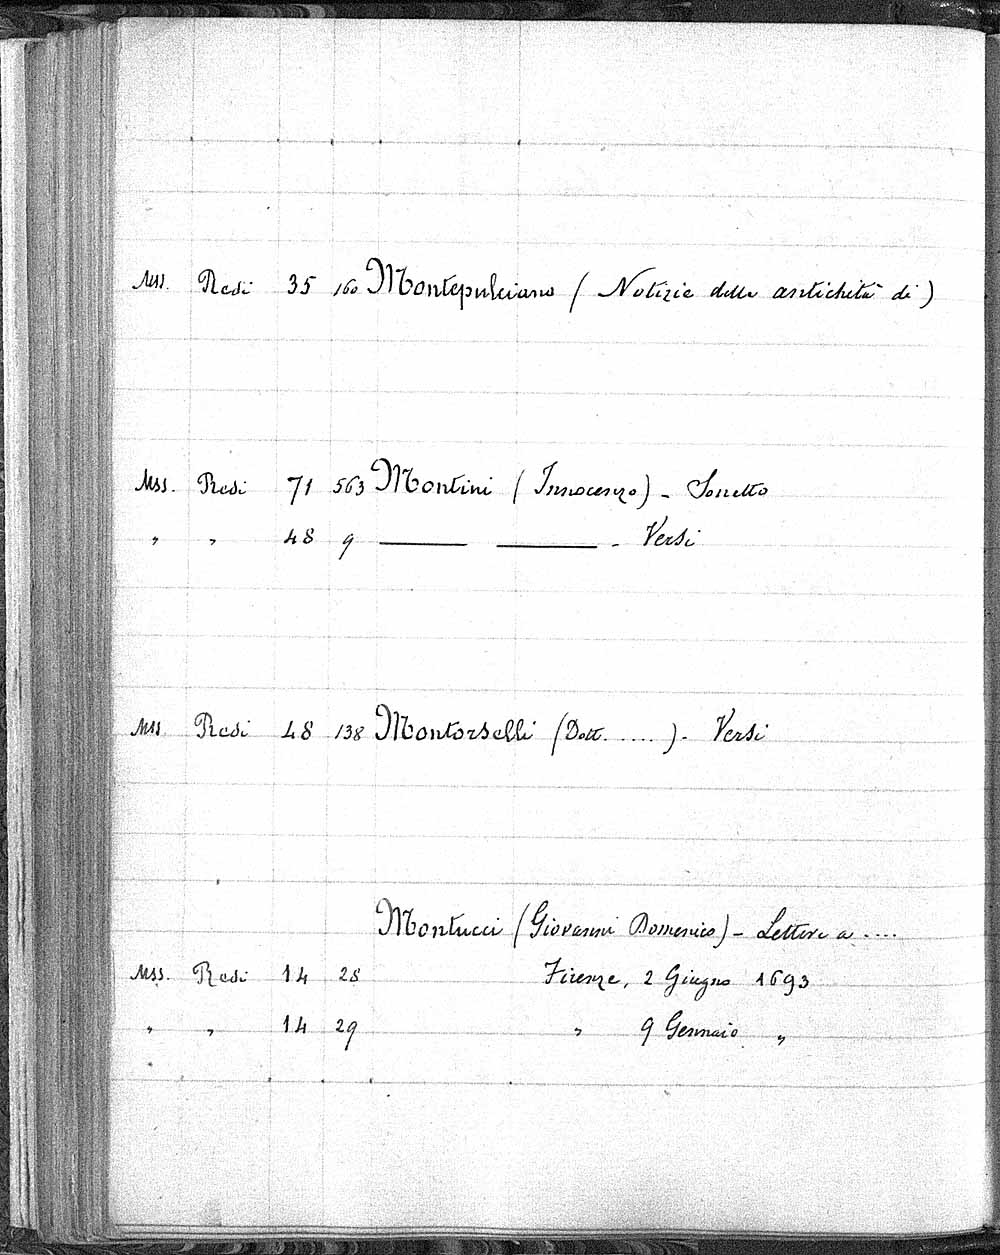 Mss. Redi 35 160 Montepulciano ( Notizie delle antichità di )
Mss. Redi 71 563 Montini ( Innocenzo ) - Sonetto
" " 48 9 ——— ——— - Versi
Mss. Redi 48 138 Montorselli ( Dott. ..... ) - Versi
Montucci ( Giovanni Domenico ) - Lettere a ....
Mss. Redi 14 28 Firenze, 2 Giugno 1693
" " 14 29 " 9 Gennaio "